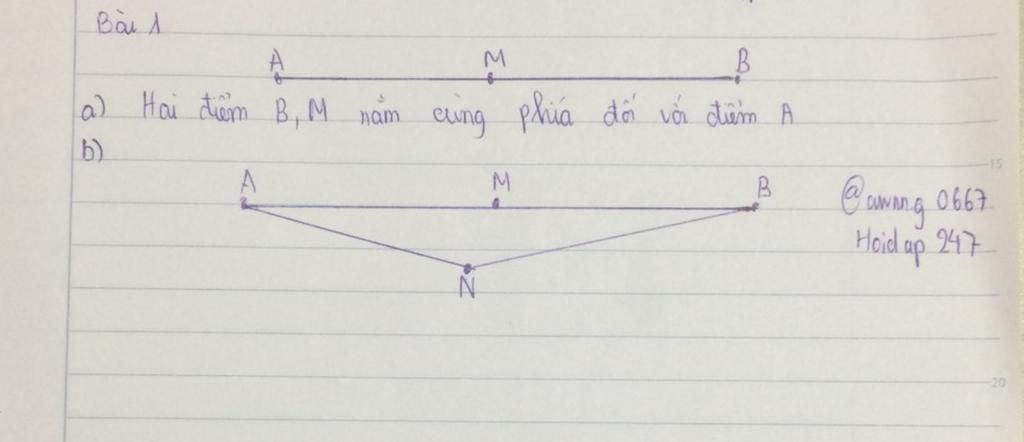 Bài 1
A M B
a) Hai điểm B, M nằm cùng phía đối với điểm A
b)
15
A M B
@awnng 0667
Hoidap 247
N
20